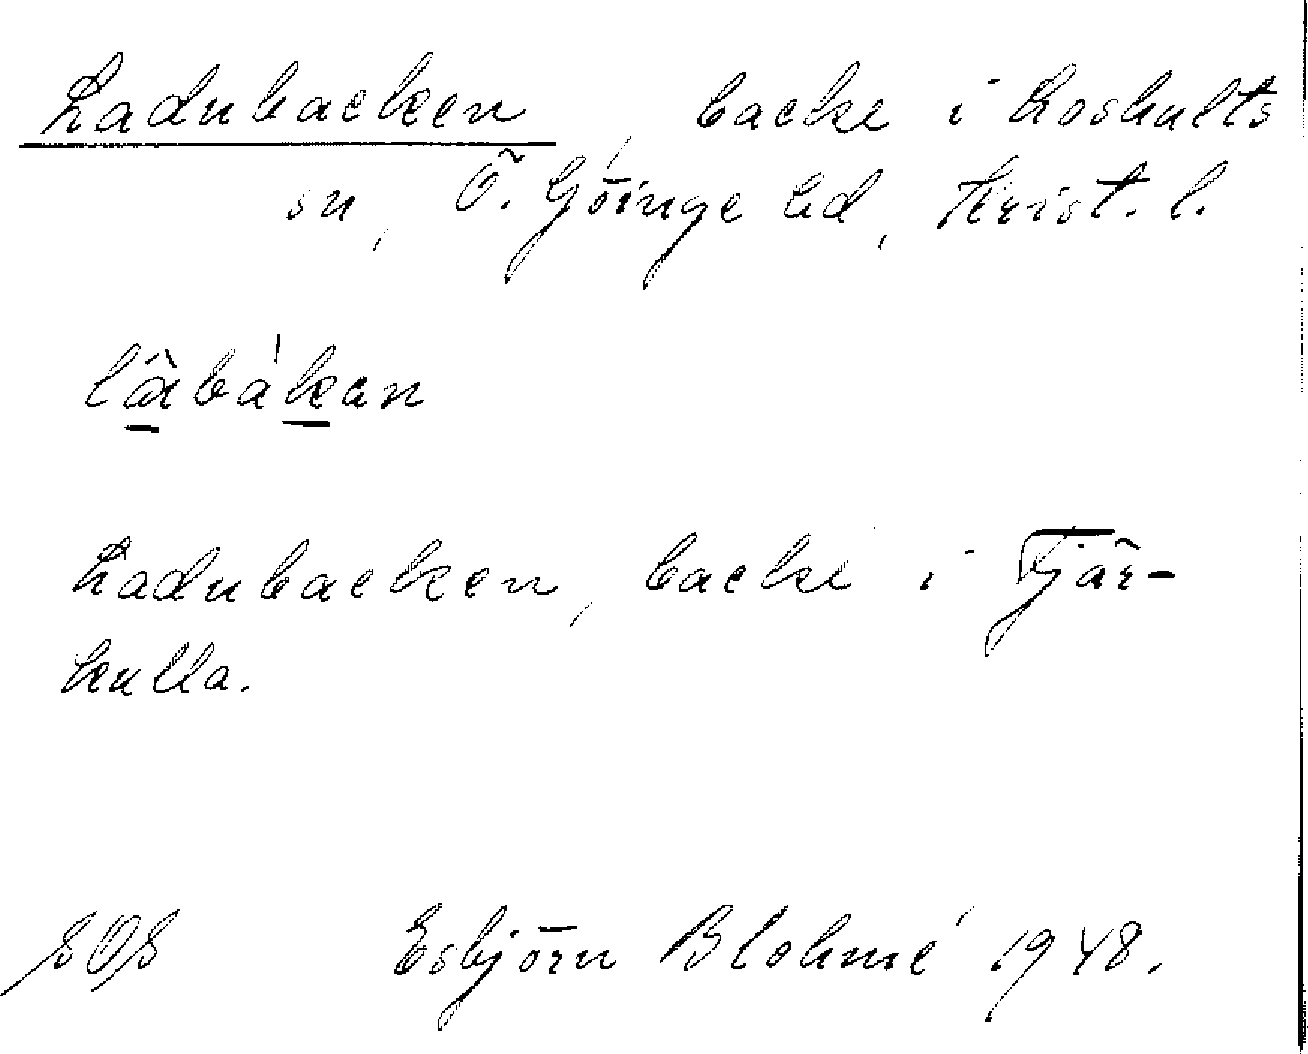 Ladubacken, backe i Loshults
sn, Ö. Göinge hd, Krist. l.
lâbákan
Ladubacken, backe i Tjär-
kulla.
Esbjörn Blohmé 1948.